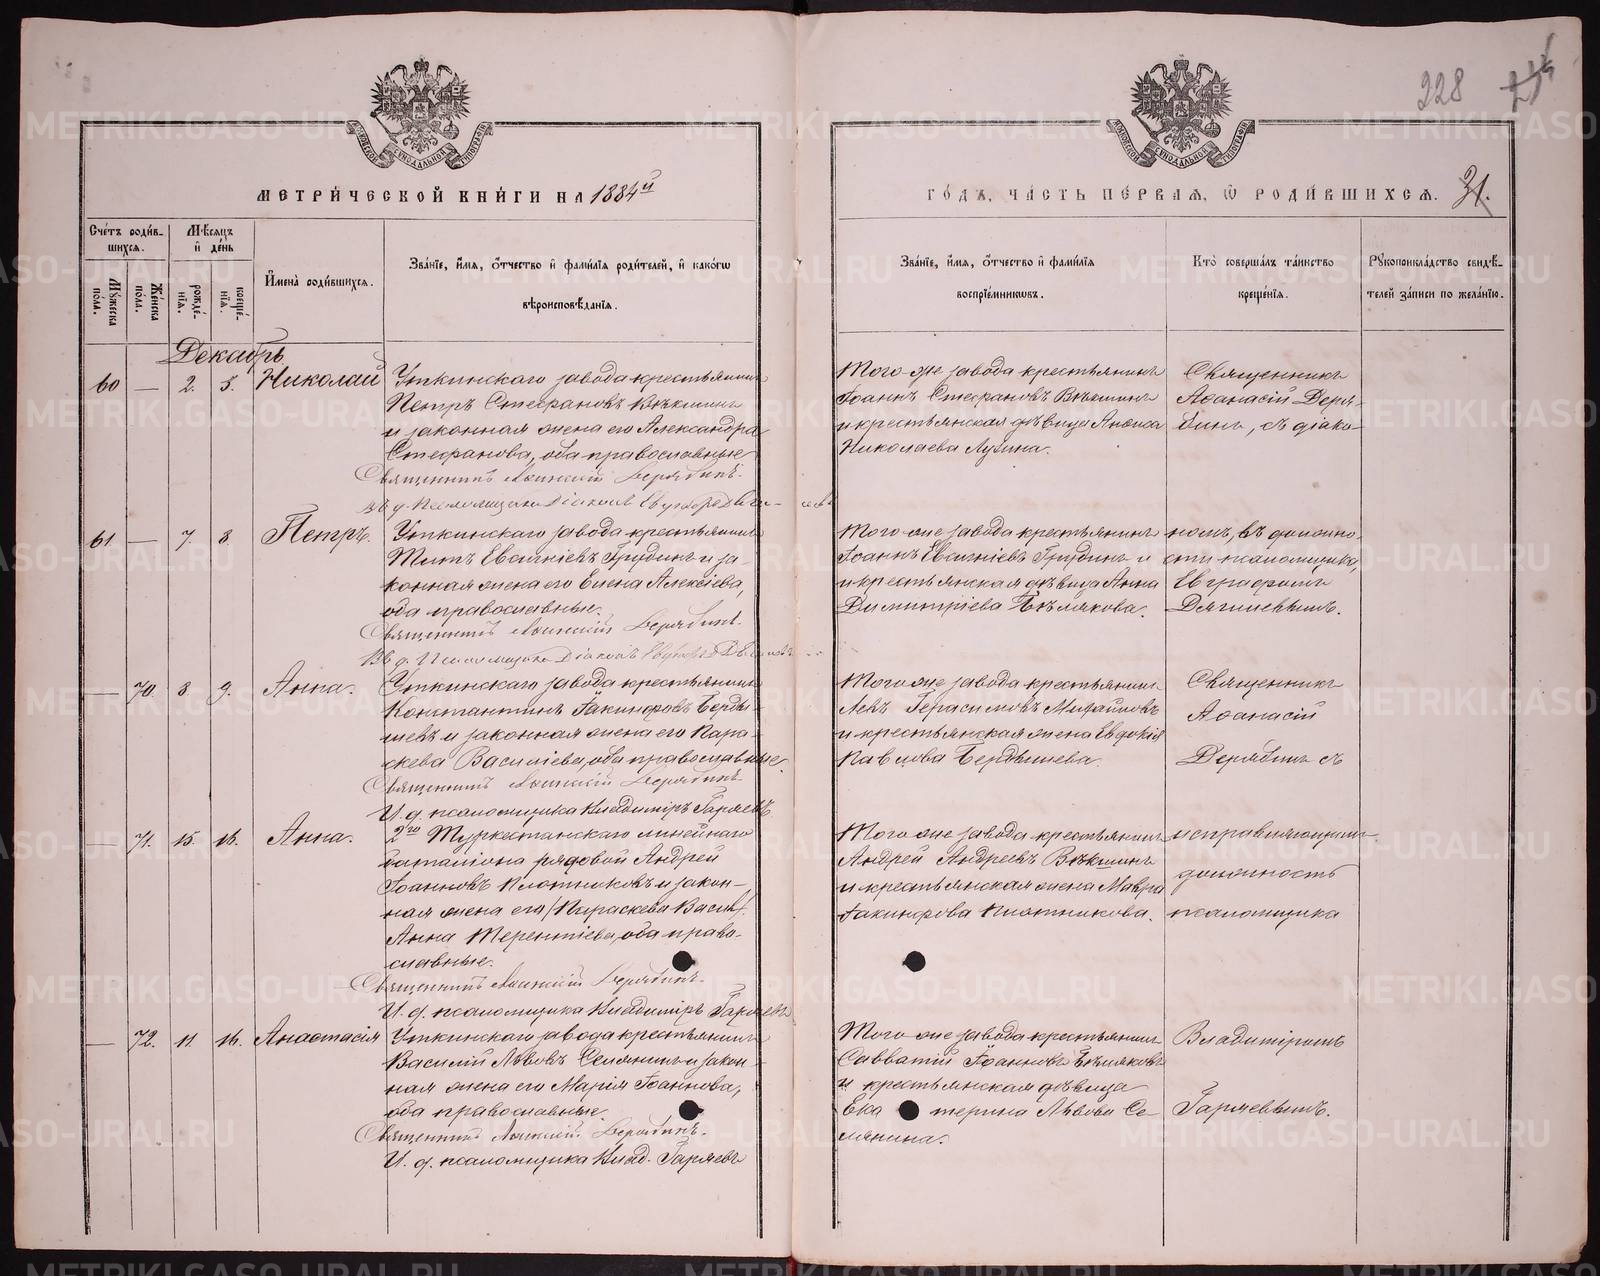 228
МЕТРИ́ЧЕСКОЙ КНИ́ГИ НА 1884й
ГО́ДЪ, ЧА́СТЬ ПЕ́РВАЯ, Ѡ РОДИ́ВШИХСЯ. 31.
Сче́тъ роди́в-
шихся.
Му́жеска по́ла.
Же́нска по́ла.
Мѣ́сяцъ и де́нь
рожде́-
нія.
креще́-
нія.
Имена̀ роди́вшихся.
Зва́нїе, и́мя, о́тчество и фами́лїя роди́телей, и како́гѡ
вѣроисповѣ́данїя.
Зва́нїе, и́мя, о́тчество и фами́лїя
воспрїе́мникѡвъ.
Кто̀ соверша́лъ та́инство
креще́нїя.
Рукоприкла́дство свидѣ́-
телей за́писи по жела́нїю.
Декабрь
60 — 2. 5. Николай
Уткинскаго завода крестьянинъ
Петръ Стефановъ Вѣкшинъ
и законная жена его Александра
Стефанова, оба православные
Священникъ Аѳанасій Дерябинъ.
Въ д. Псаломщика Діаконъ Евграфъ Дягилевъ
Того же завода крестьянинъ
Іоаннъ Стефановъ Вѣкшинъ
и крестьянская дѣвица Анѳиса
Николаева Лузина.
Священникъ
Аѳанасій Деря-
бинъ, съ діако-
61 — 7. 8. Петръ.
Уткинскаго завода крестьянинъ
Титъ Евгеніевъ Грудинъ и за-
конная жена его Елена Алексіева,
оба православные.
Священникъ Аѳанасій Дерябинъ.
Въ д. Псаломщика Діаконъ Евграфъ Дягилевъ
Того же завода крестьянинъ
Іоаннъ Евгеніевъ Грудинъ и
и крестьянская дѣвица Анна
Димитріева Бѣлякова.
номъ, въ должно-
сти псаломщика,
Евграфомъ
Дягилевымъ.
— 70 8. 9. Анна.
Уткинскаго завода крестьянинъ
Константинъ Іакинфовъ Берды-
шевъ и законная жена его Пара-
скева Василіева, оба православные.
Священникъ Аѳанасій Дерябинъ
И. д. псаломщика Владиміръ Гаряевъ
Того же завода крестьянинъ
Левъ Герасимовъ Михайловъ
и крестьянская жена Евдокія
Павлова Бердышева.
Священникъ
Аѳанасій
Дерябинъ съ
— 71. 15. 16. Анна.
2го Туркестанскаго линейнаго
баталіона рядовой Андрей
Іоанновъ Плотниковъ и закон-
ная жена его (Параскева Васил).
Анна Терентіева, оба право-
славные.
Священникъ Аѳанасій Дерябинъ.
И. д. псаломщика Владиміръ Гаряевъ
Того же завода крестьянинъ
Андрей Андреевъ Вѣкшинъ
и крестьянская жена Мавра
Іакинфова Плотникова.
исправляющимъ
должность
псаломщика
— 72. 11. 16. Анастасія
Уткинскаго завода крестьянинъ
Василій Львовъ Селянинъ и закон-
ная жена его Марія Іоаннова,
оба православные.
Священникъ Аѳанасій Дерябинъ.
И. д. псаломщика Влад. Гаряевъ
Того же завода крестьянинъ
Савватій Іоанновъ Бѣляковъ
и крестьянская дѣвица
Екатерина Львова Се-
лянина.
Владиміромъ
Гаряевымъ.
METRIKI.GASO-URAL.RU